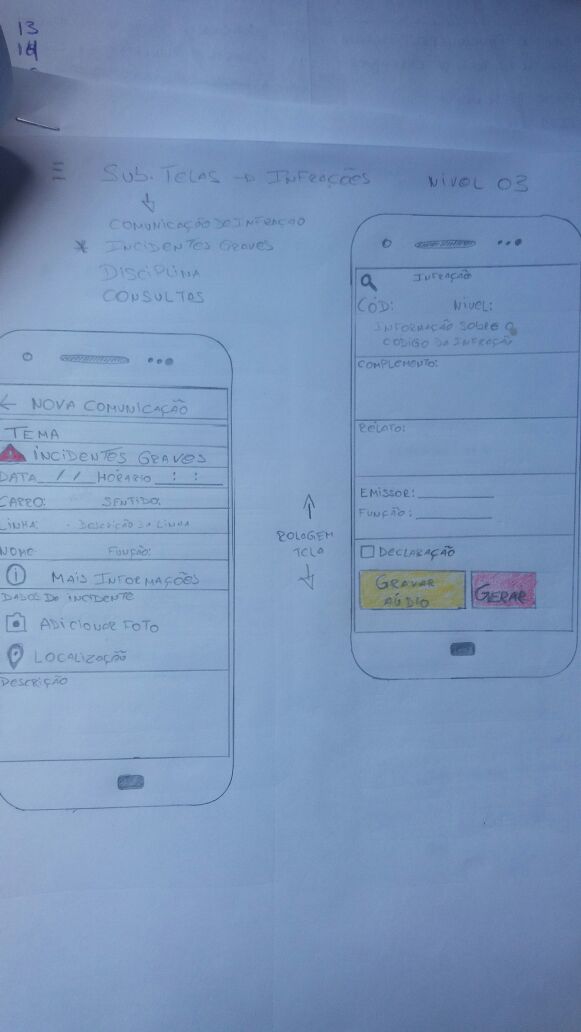 13
14
SUB. TELAS → INFRAÇÕES NIVEL 03
COMUNICAÇÃO DE INFRAÇÃO
* INCIDENTES GRAVES
DISCIPLINA
CONSULTAS
← NOVA COMUNICAÇÃO
TEMA
INCIDENTES GRAVES
DATA __/__/__ HORÁRIO __:__:__
CARRO: SENTIDO:
LINHA: - DESCRIÇÃO DA LINHA
NOME FUNÇÃO:
i MAIS INFORMAÇÕES
DADOS DO INCIDENTE
ADICIONAR FOTO
LOCALIZAÇÃO
DESCRIÇÃO
ROLAGEM
TELA
INFRAÇÃO
CÓD: NIVEL:
INFORMAÇÃO SOBRE O
CODIGO DA INFRAÇÃO
COMPLEMENTO:
RELATO:
EMISSOR: ________
FUNÇÃO: ________
DECLARAÇÃO
GRAVAR
AÚDIO
GERAR